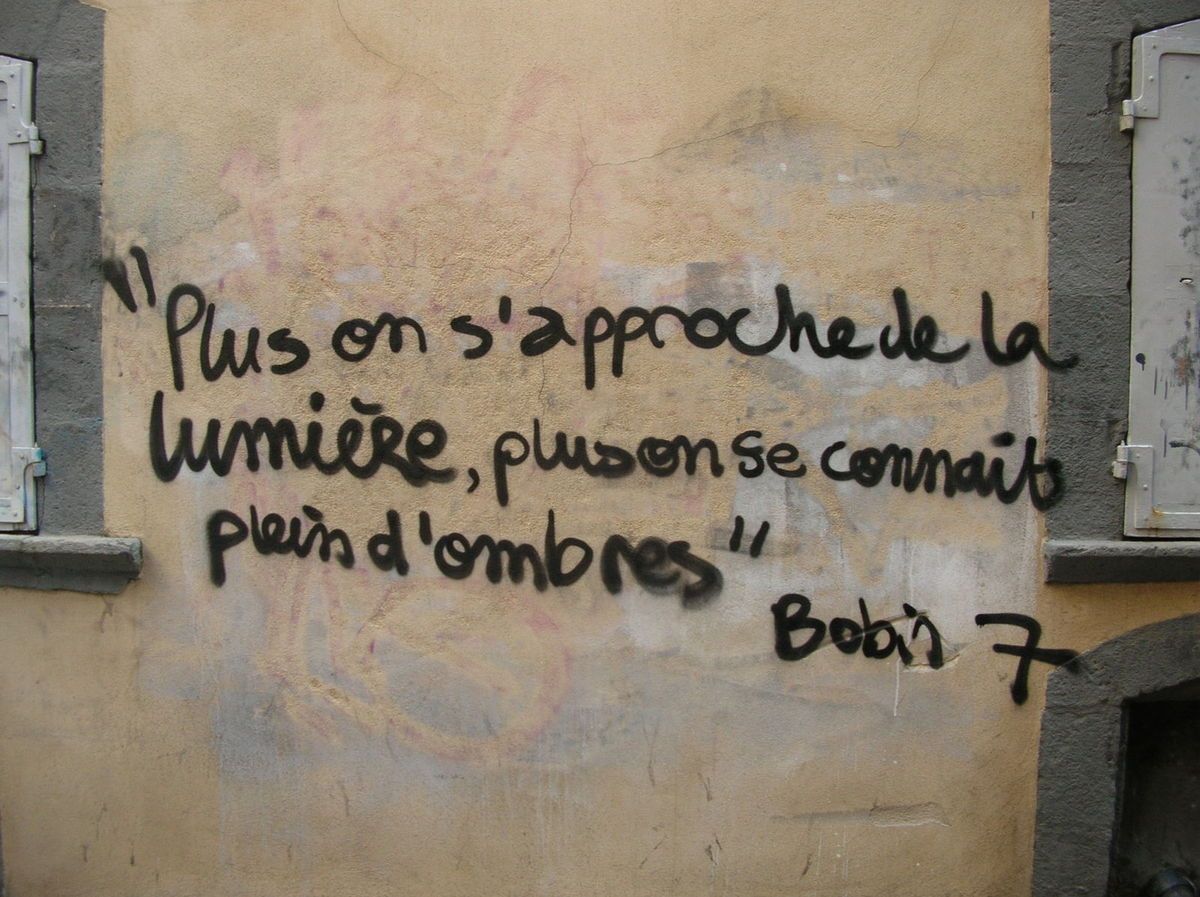 "Plus on s'approche de la
lumière, plus on se connait
plein d'ombres"
Bobin 7